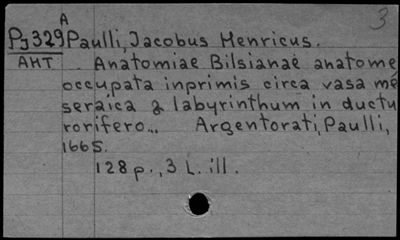 A 3
Py329 Paulli, Jacobus Henricus.
AHT Anatomiae Bilsianae anatome
occupata inprimis circa vasa me
seraica & labyrinthum in ductu
rorifero... Argentorati, Paulli,
1665.
128 p., 3 L. ill.